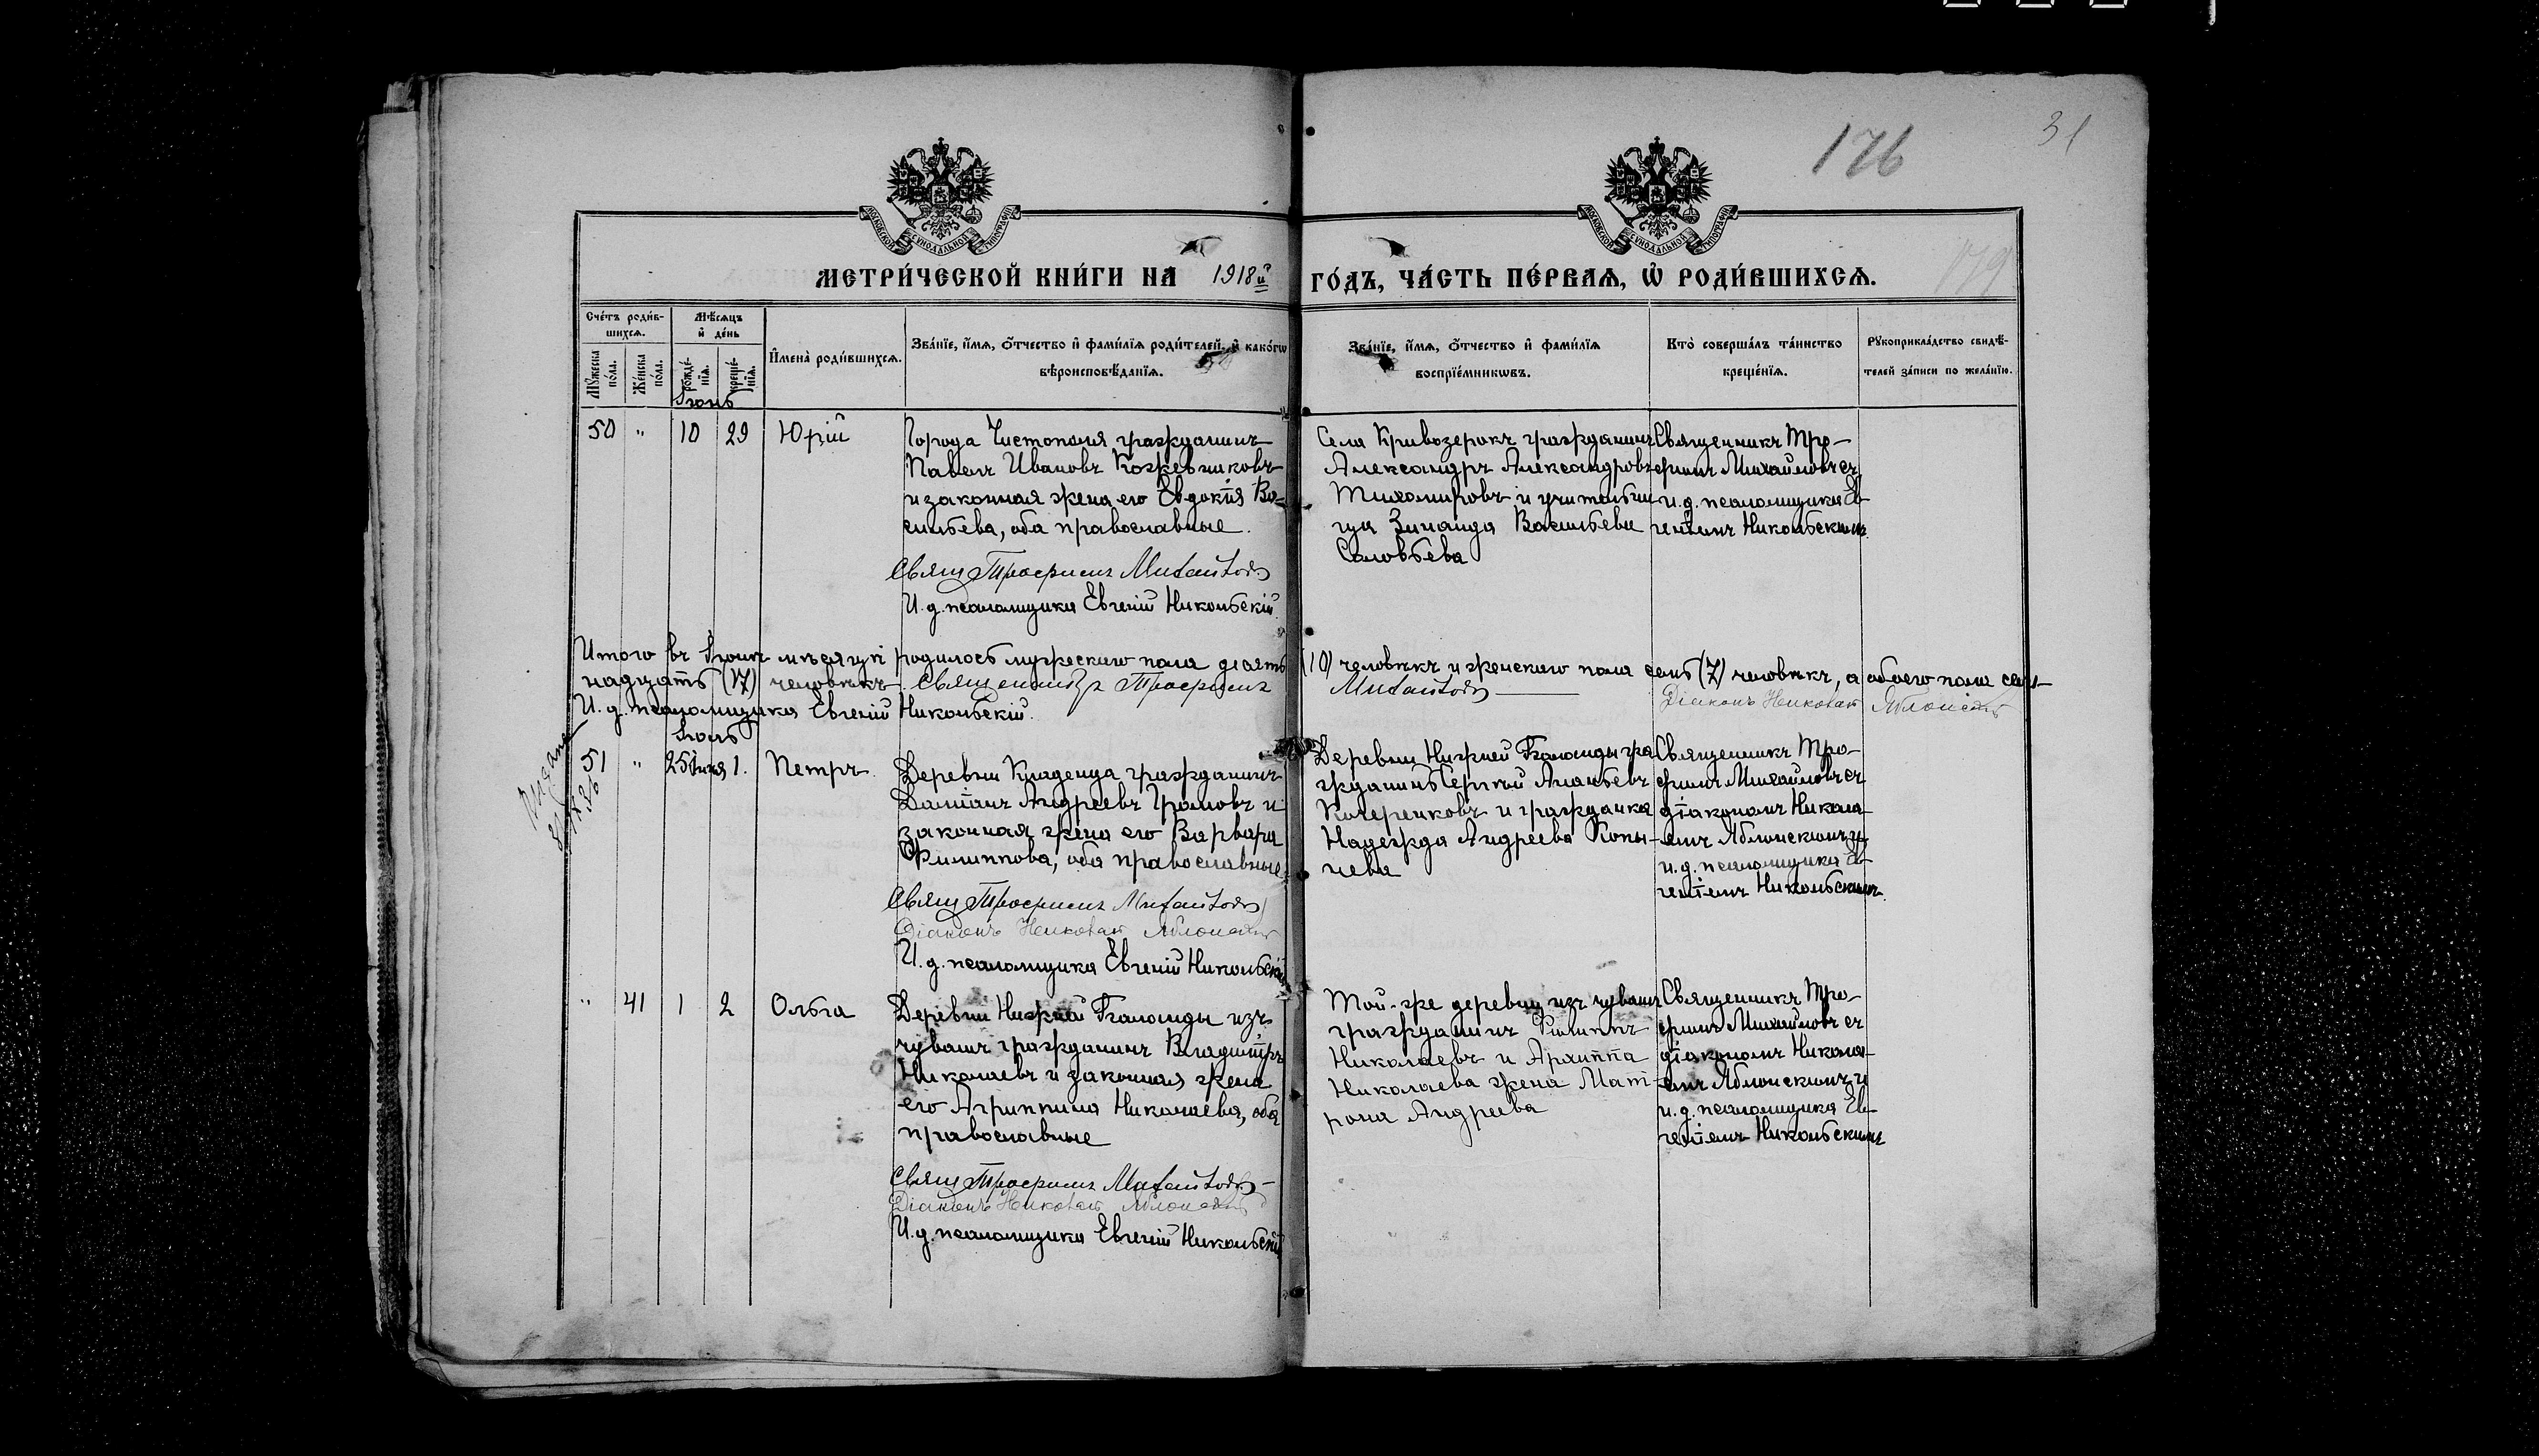 31
176
179
МОСКОВСКОЙ СУНОДАЛЬНОЙ ТИПОГРАФІИ
МОСКОВСКОЙ СУНОДАЛЬНОЙ ТИПОГРАФІИ
МЕТРИ́ЧЕСКОЙ КНИ́ГИ НА 1918й ГО́ДЪ, ЧА́СТЬ ПЕ́РВАѦ, Ѡ҆ РОДИ́ВШИХСѦ.
Сче́тъ роди́в-
шихсѧ.
Мꙋ́жеска по́ла.
Же́нска по́ла.
Мѣ́сѧцъ
и҆ де́нь
рожде́-
нїѧ.
креще́-
нїѧ.
И҆мена̀ роди́вшихсѧ.
Зва́нїе, и҆́мѧ, ѻ҆́тчество и҆ фами́лїѧ роди́телей, и҆ како́гѡ
вѣроисповѣ́данїѧ.
Зва́нїе, и҆́мѧ, ѻ҆́тчество и҆ фами́лїѧ
воспрїе́мникѡвъ.
Кто̀ соверша́лъ та́инство
креще́нїѧ.
Рꙋкоприкла́дство свидѣ́-
телей за́писи по жела́нїю.
Іюнь
50 " 10 29 Юрій
Города Чистополя гражданинъ
Павелъ Ивановъ Кожевниковъ
и законная жена его Евдокія Ва-
сильева, оба православные.
Свящ Трофимъ Михайловъ
И. д. псаломщика Евгеній Никольскій
Села Кривозерокъ гражданинъ
Александръ Александровъ
Тихомировъ и учитель
ца Зинаида Васильева
Соловьева
Священникъ Тро-
фимъ Михайловъ съ
и. д. псаломщика Ев-
геніемъ Никольскимъ.
Итого въ Іюнѣ мѣсяцѣ родилось мужескаго пола десять (10) человѣкъ и женскаго пола семь (7) человѣкъ, а обоего пола сем-
надцать (17) человѣкъ. Священникъ Трофимъ Михайловъ
Діаконъ Николай Яблонскій
И. д. псаломщика Евгеній Никольскій.
Іюль
51 " 25 Іюня 1. Петръ.
Деревни Кладенца гражданинъ
Даміанъ Андреевъ Громовъ и
законная жена его Варвара
Филиппова, оба православные
Свящ Трофимъ Михайловъ
Діаконъ Николай Яблонскій
И. д. псаломщика Евгеній Никольскій
Деревни Нижней Баланды гра
жданинъ Сергѣй Ананьевъ
Кочеренковъ и гражданка
Надежда Андреева Копы-
чева
Священникъ Тро-
фимъ Михайловъ съ
діакономъ Никола-
емъ Яблонскимъ и
и. д. псаломщика Ев-
геніемъ Никольскимъ.
" 41 1 2 Ольга
Деревни Нижней Баланды изъ
чувашъ гражданинъ Владиміръ
Николаевъ и законная жена
его Агриппина Николаева, оба
православные
Свящ Трофимъ Михайловъ
Діаконъ Николай Яблонскій
И. д. псаломщика Евгеній Никольскій
Той-же деревни изъ чувашъ
гражданинъ Филиппъ
Николаевъ и
Николаева жена Мат-
рона Андреева
Священникъ Тро-
фимъ Михайловъ съ
діакономъ Никола-
емъ Яблонскимъ и
и. д. псаломщика Ев-
геніемъ Никольскимъ